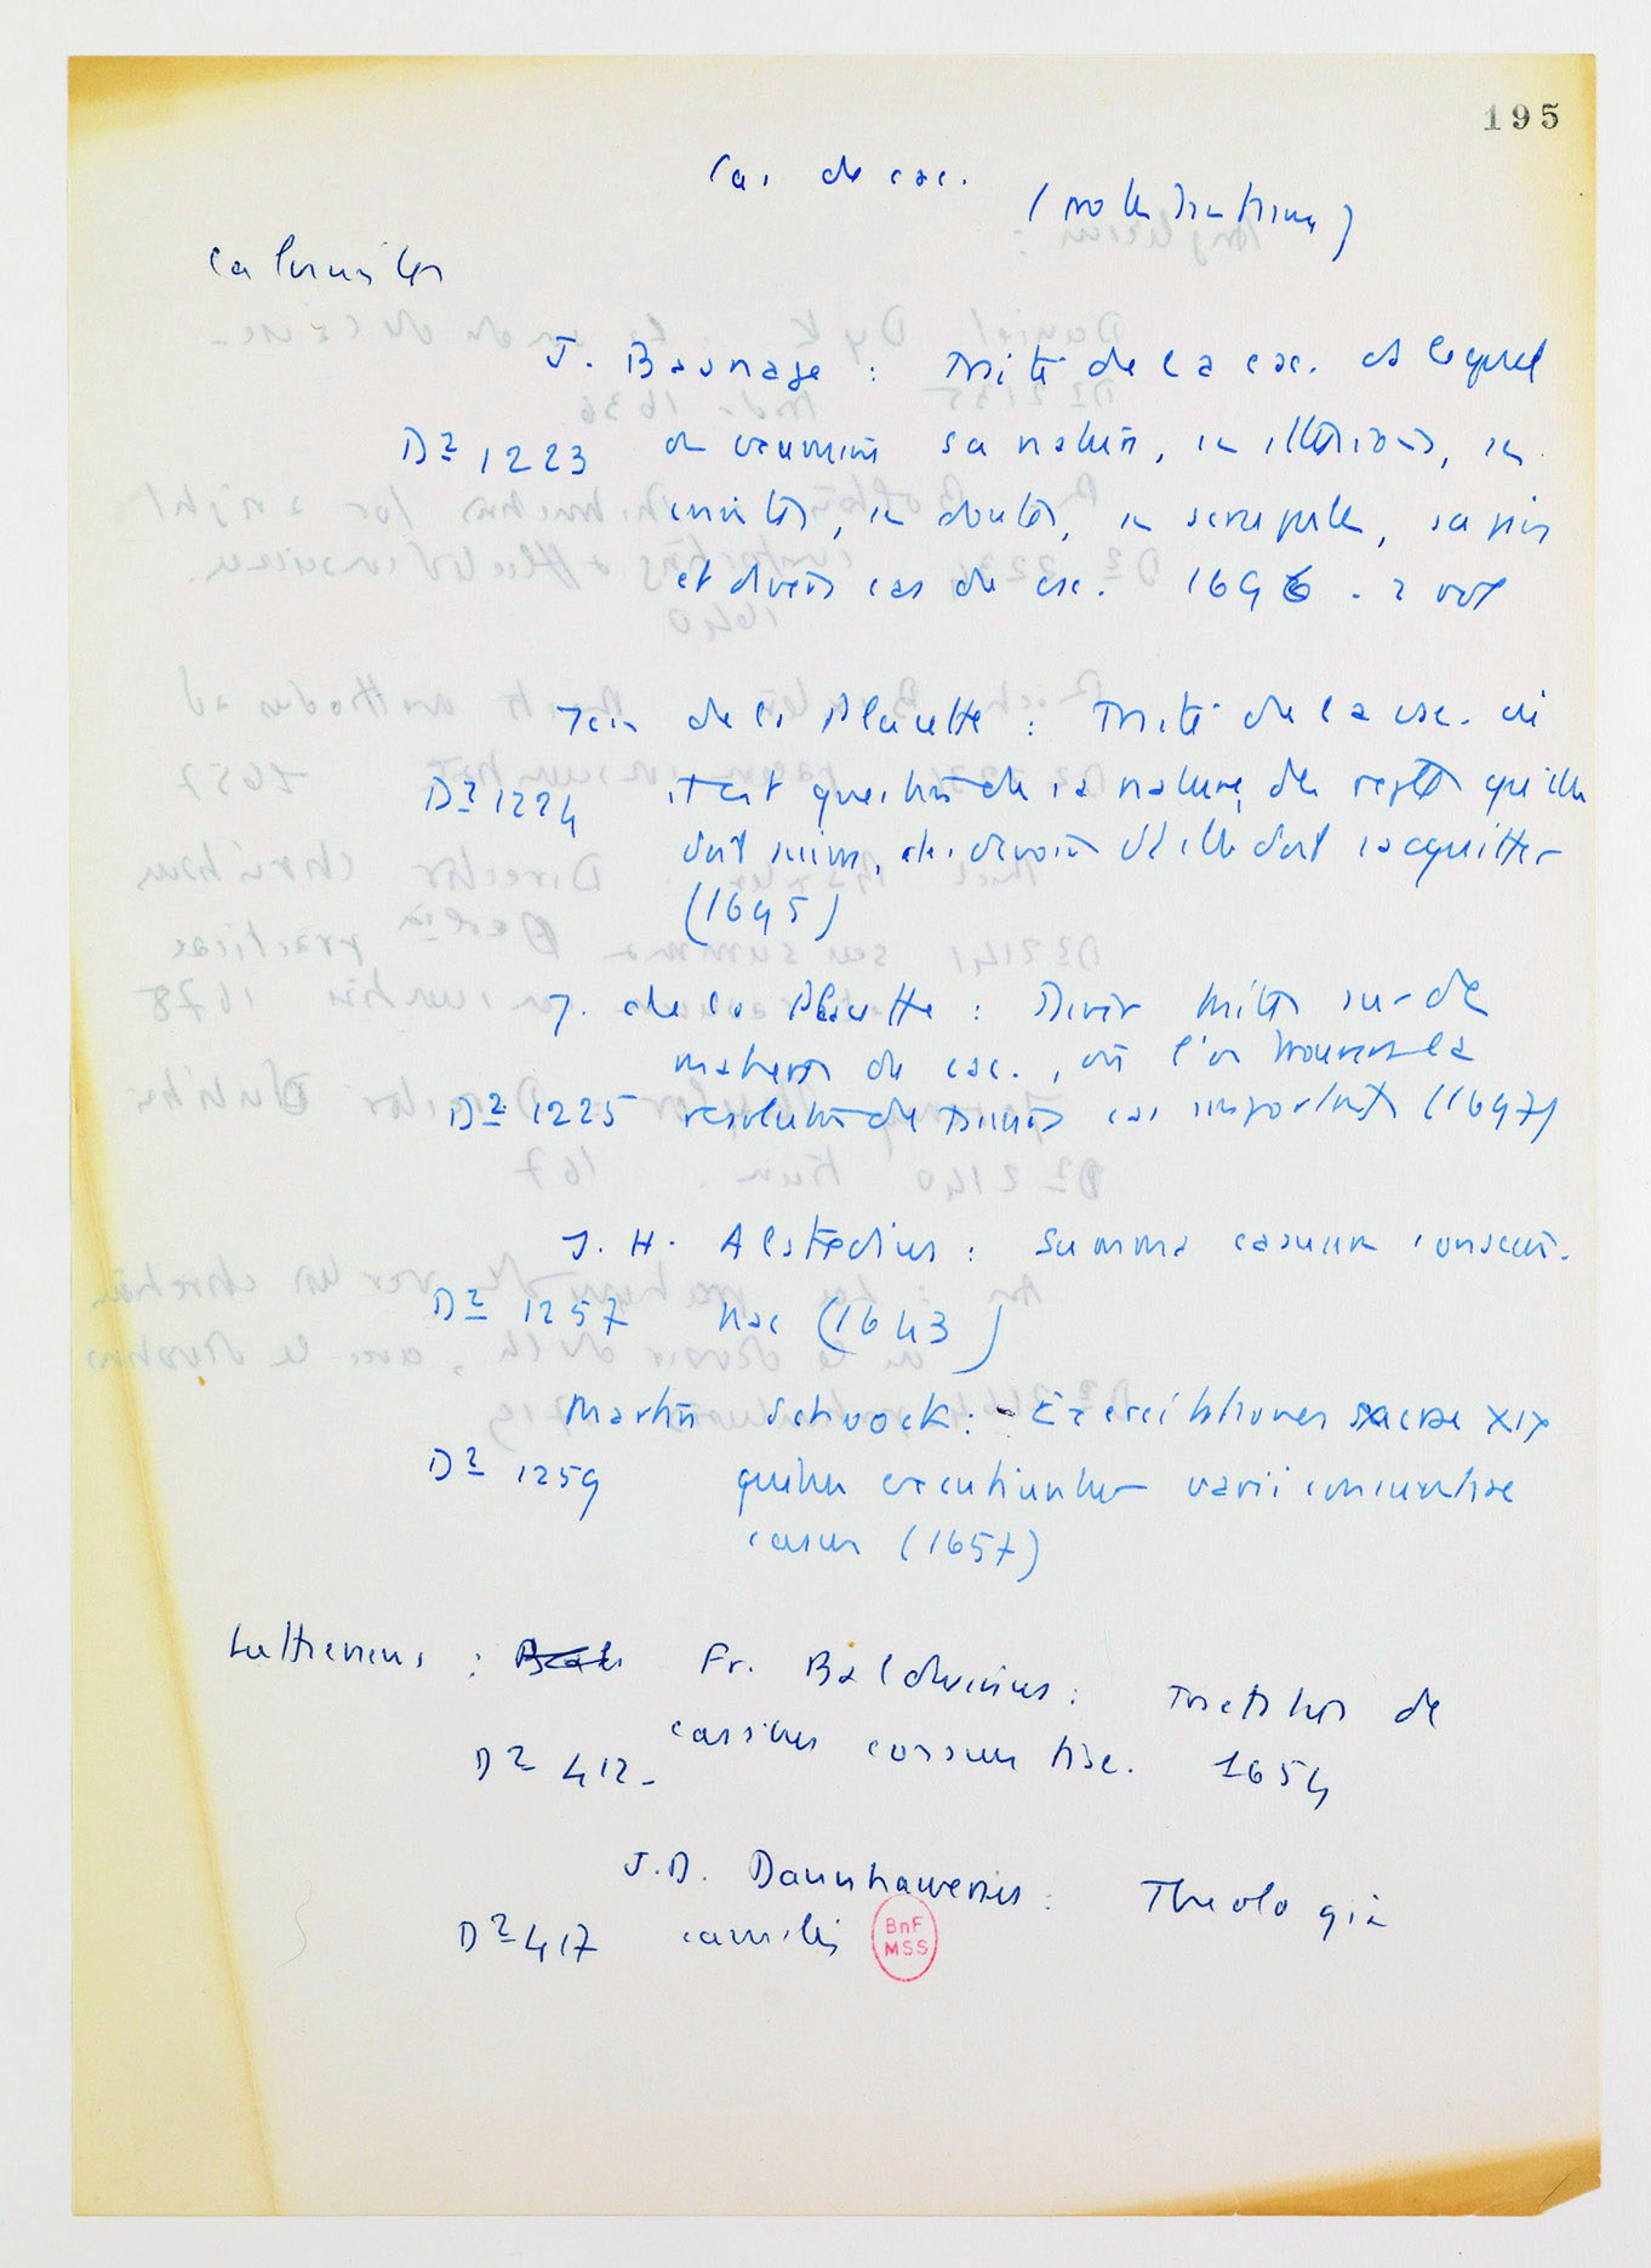 195
Cas de csc.
(protestantisme)
Calvinistes
J. Basnage : Traité de la csc. ds lequel
D² 1223 on examine sa nature, ses illusions, ses
craintes, ses doutes, ses scrupules, sa paix
et divers cas de csc. 1696 . 2 vol
Jean de la Placette : Traité de la csc. où
D² 1224 il est question de sa nature, des règles qu'elle
doit suivre, des devoirs dt elle doit s'acquitter
(1695)
J. de la Placette : Divers traités sur des
matières de csc., où l'on trouvera la
D² 1225 résolution de divers cas importants (1697)
J. H. Alstedius : Summa casuum conscien-
D² 1257 tiae (1643)
Martin Schoock : Exercitationes sacrae XIX
D² 1259 quibus excutiuntur varii conscientiae
casus (1657)
Luthériens : Fr. Baldwinus : Tractatus de
D² 412- casibus conscientiae. 1654
J.D. Dannhawerus : Theologia
D² 417 casualis
BnF
MSS